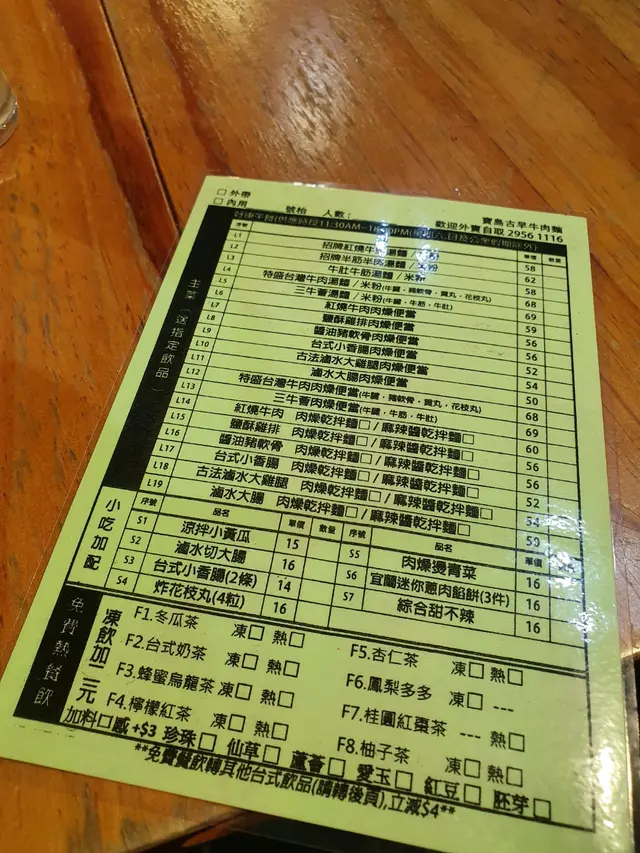 □ 外帶
□ 內用
號枱 人數:
寶島古早牛肉麵
歡迎外賣自取 2956 1116
主菜(送指定飲品)
單價 數量
L1 招牌紅燒牛肉湯麵 / 米粉 58
L2 招牌半筋半肉湯麵 / 米粉 62
L3 牛肚牛筋湯麵 / 米粉 58
L4 特盛台灣牛肉湯麵 / 米粉(牛腱，豬軟骨，貢丸，花枝丸) 68
L5 三牛薈湯麵 / 米粉(牛腱，牛筋，牛肚) 69
L6 紅燒牛肉肉燥便當 59
L7 鹽酥雞排肉燥便當 56
L8 醬油豬軟骨肉燥便當 56
L9 台式小香腸肉燥便當 52
L10 古法滷水大雞腿肉燥便當 54
L11 滷水大腸肉燥便當 50
L12 特盛台灣牛肉肉燥便當(牛腱，豬軟骨，貢丸，花枝丸) 68
L13 三牛薈肉燥便當(牛腱，牛筋，牛肚) 69
L14 紅燒牛肉 肉燥乾拌麵□ / 麻辣醬乾拌麵□ 60
L15 鹽酥雞排 肉燥乾拌麵□ / 麻辣醬乾拌麵□ 56
L16 醬油豬軟骨 肉燥乾拌麵□ / 麻辣醬乾拌麵□ 56
L17 台式小香腸 肉燥乾拌麵□ / 麻辣醬乾拌麵□ 52
L18 古法滷水大雞腿 肉燥乾拌麵□ / 麻辣醬乾拌麵□ 54
L19 滷水大腸 肉燥乾拌麵□ / 麻辣醬乾拌麵□ 50
小吃加配
序號 品名 單價 數量 序號 品名 單價 數量
S1 涼拌小黃瓜 15
S2 滷水切大腸 16
S3 台式小香腸(2條) 14
S4 炸花枝丸(4粒) 16
S5 肉燥燙青菜 16
S6 宜蘭迷你蔥肉餡餅(3件) 16
S7 綜合甜不辣 16
免費熱餐飲
凍飲加二元
F1.冬瓜茶 凍□ 熱□
F2.台式奶茶 凍□ 熱□
F3.蜂蜜烏龍茶 凍□ 熱□
F4.檸檬紅茶 凍□ 熱□
F5.杏仁茶 凍□ 熱□
F6.鳳梨多多 凍□ ---
F7.桂圓紅棗茶 --- 熱□
F8.柚子茶 凍□ 熱□
加料口感 +$3 珍珠□ 仙草□ 蘆薈□ 愛玉□ 紅豆□ 胚芽□
**免費餐飲轉其他台式飲品(請轉後頁),立減$4**